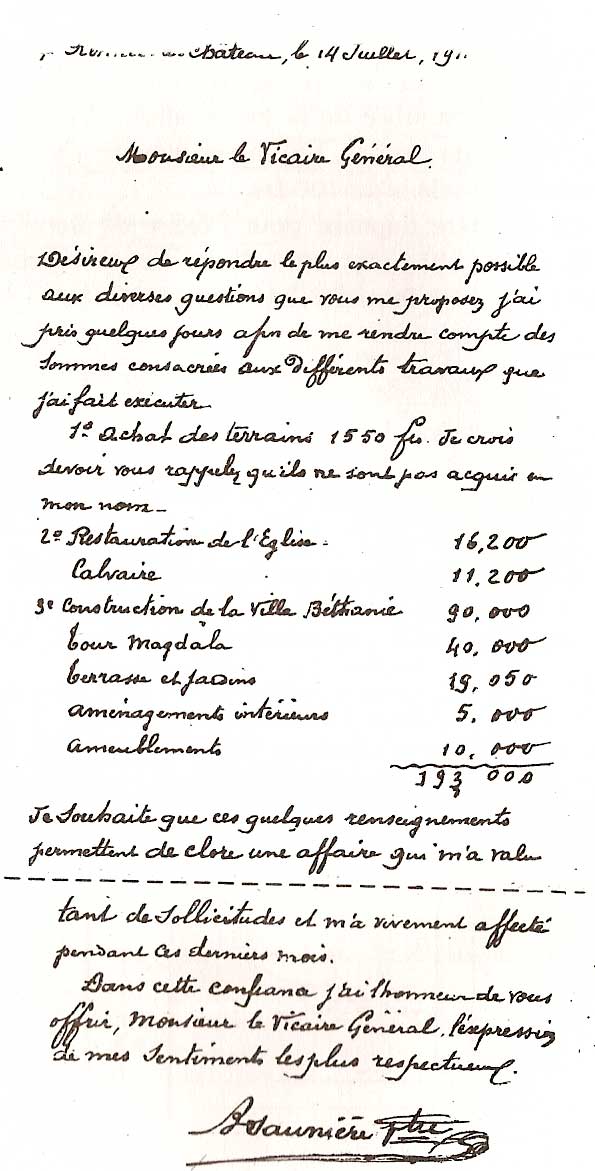 Château, le 14 Juillet, 19
Monsieur le Vicaire Général.
Désireux de répondre le plus exactement possible
aux diverses questions que vous me proposez j'ai
pris quelques jours afin de me rendre compte des
sommes consacrées aux différents travaux que
j'ai fait exécuter
1º Achat des terrains 1550 frs. Je crois
devoir vous rappeler qu'ils ne sont pas acquis en
mon nom_
2º Restauration de l'Eglise. 16,200
Calvaire 11.200
3º Construction de la Villa Béthanie 90,000
Tour Magdala 40,000
Terrasse et jardins 19,050
Aménagements intérieurs 5.000
Ameublements 10.000
193 000
Je souhaite que ces quelques renseignements
permettent de clore une affaire qui m'a valu
tant de sollicitudes et m'a vivement affecté
pendant ces derniers mois.
Dans cette confiance j'ai l'honneur de vous
offrir, Monsieur le Vicaire Général, l'expression
de mes sentiments les plus respectueux.
BSaunière Ptre